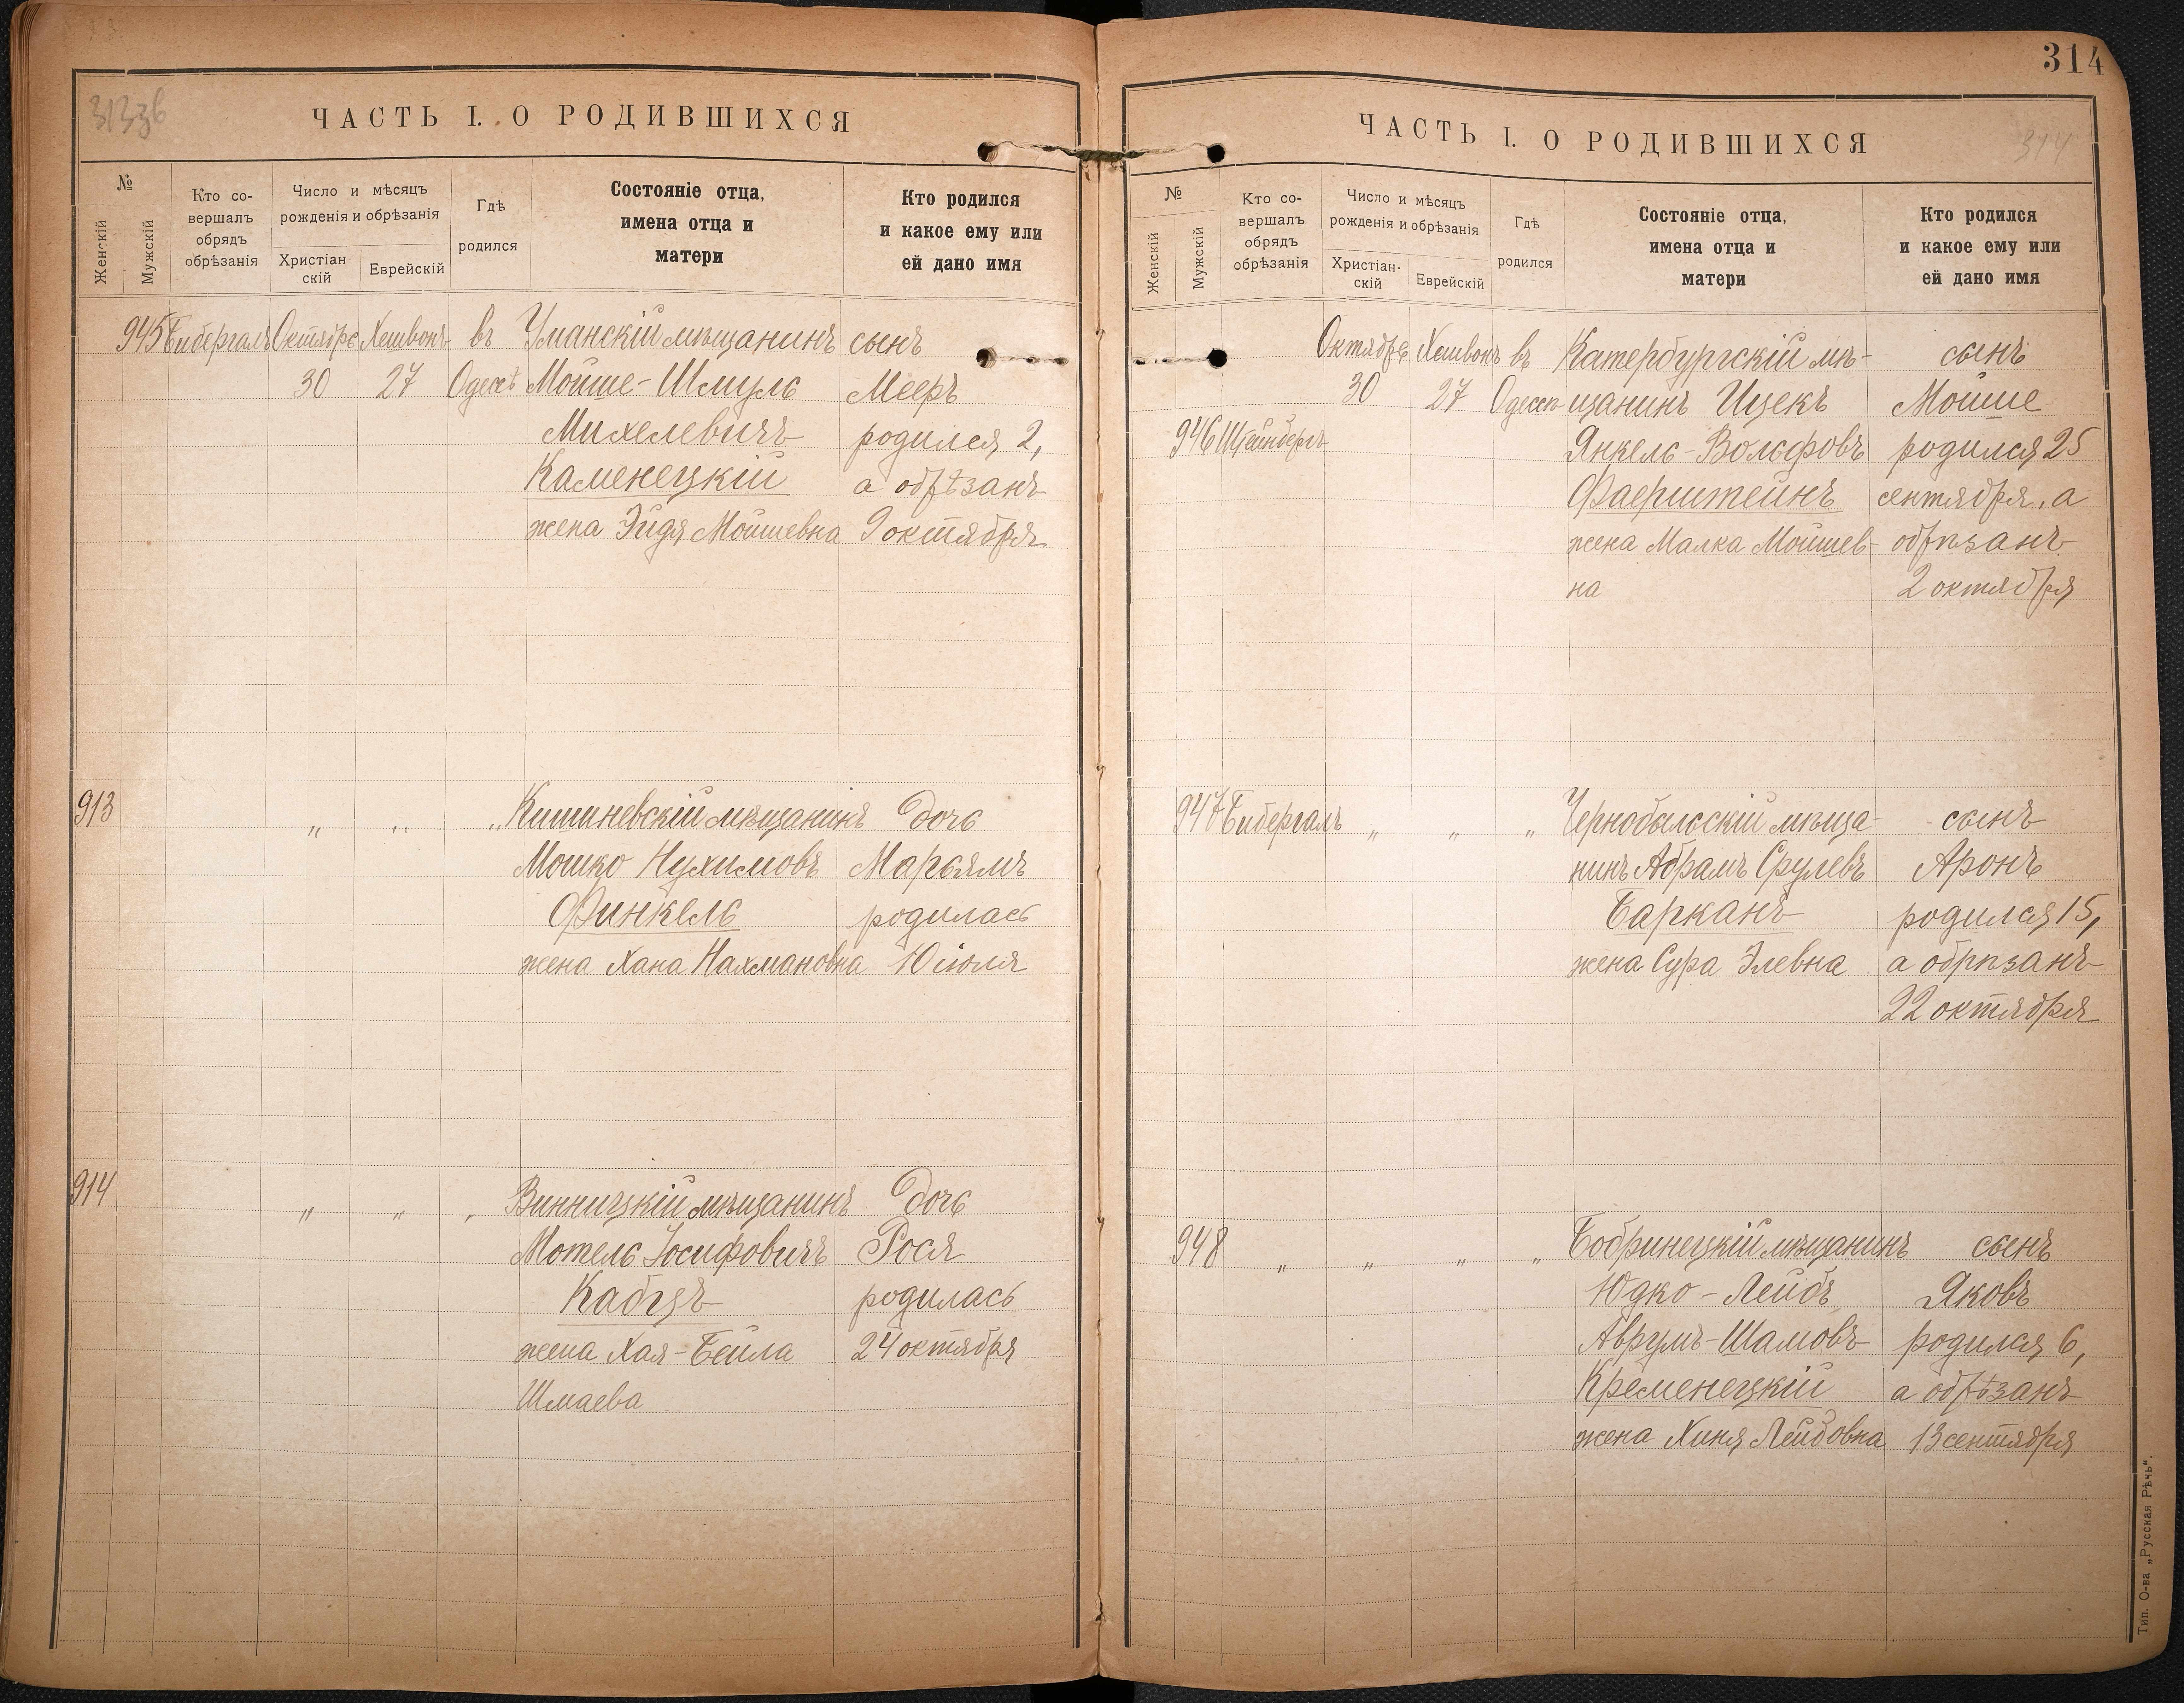 313 зв
ЧАСТЬ I. О РОДИВШИХСЯ
№
Женскій
Мужскій
Кто со-
вершалъ
обрядъ
обрѣзанія
Число и мѣсяцъ
рожденія и обрѣзанія
Христіан
скій
Еврейскій
Гдѣ
родился
Состояніе отца,
имена отца и
матери
Кто родился
и какое ему или
ей дано имя
945 Бибергалъ Октябрь Хешвонъ въ Уманскій мѣщанинъ сынъ
30 27 Одессѣ Мойше-Шмуль Мееръ
Михелевичъ родился 2,
Каменецкій а обрѣзанъ
жена Эйдя Мойшевна 9 октября
913 „ „ „ Кишиневскій мѣщанинъ дочь
Мошко Нухимовъ Марьямъ
Финкель родилась
жена Хана Нахмановна 10 іюля
914 „ „ „ Винницкій мѣщанинъ дочь
Мотель Іосифовичъ Рося
Кабцъ родилась
жена Хая-Бейла 24 октября
Шмаева
314
ЧАСТЬ I. О РОДИВШИХСЯ
314
№
Женскій
Мужскій
Кто со-
вершалъ
обрядъ
обрѣзанія
Число и мѣсяцъ
рожденія и обрѣзанія
Христіан-
скій
Еврейскій
Гдѣ
родился
Состояніе отца,
имена отца и
матери
Кто родился
и какое ему или
ей дано имя
Октябрь Хешвонъ въ Катербургскій мѣ- сынъ
30 27 Одессѣ щанинъ Ицекъ Мойше
946 Штейнбергъ Янкель-Вольфовъ родился 25
Фаерштейнъ сентября, а
жена Малка Мойшев- обрѣзанъ
на 2 октября
947 Бибергалъ „ „ „ Чернобыльскій мѣща- сынъ
нинъ Абрамъ Срулевъ Аронъ
Барканъ родился 15,
жена Сура Элевна а обрѣзанъ
22 октября
948 „ „ „ „ Бобринецкій мѣщанинъ сынъ
Юдко-Лейбъ Яковъ
Аврумъ-Шамовъ родился 6,
Кременецкій а обрѣзанъ
жена Хиня Лейбовна 13 сентября
Тип. О-ва „Русская Рѣчь“.